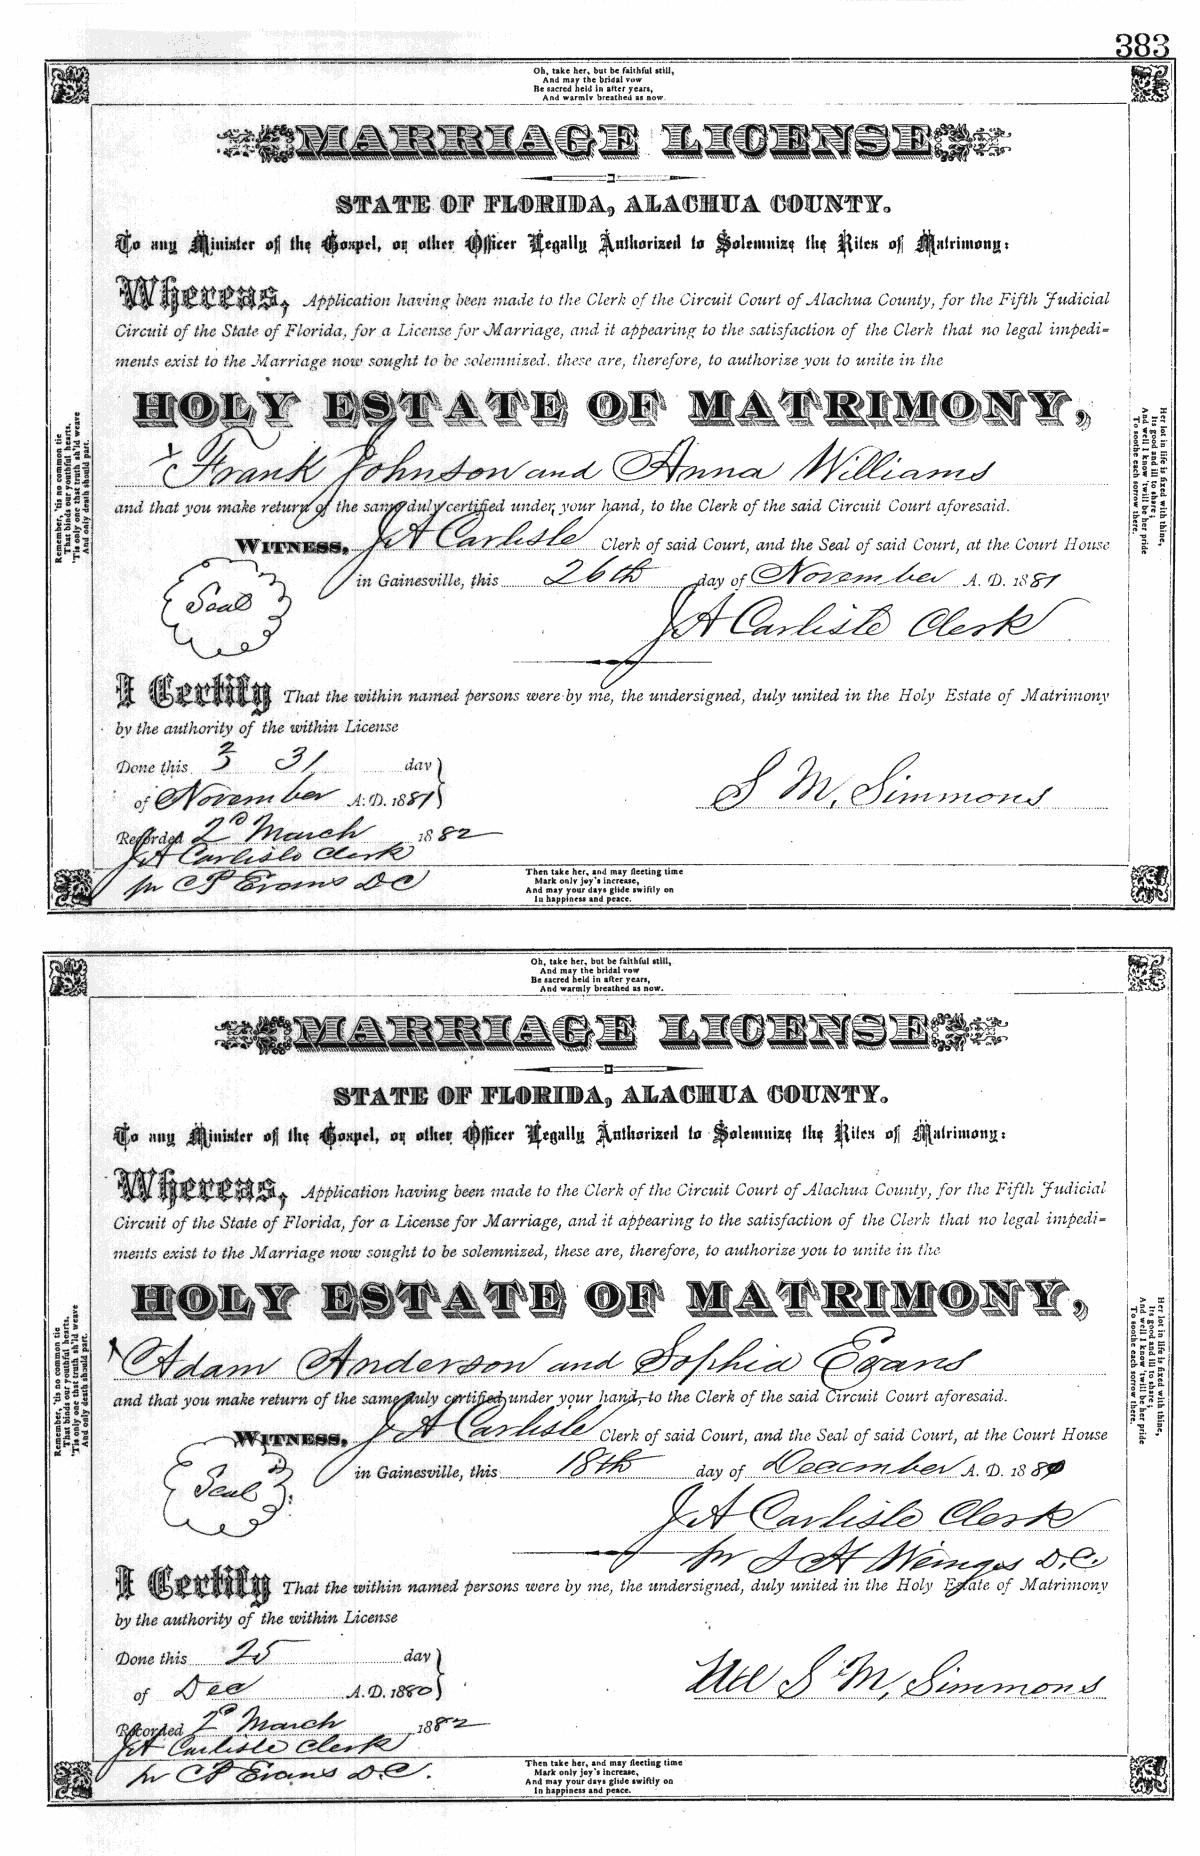 383
Oh, take her, but be faithful still,
And may the bridal vow
Be sacred held in after years,
And warmly breathed as now.
MARRIAGE LICENSE
STATE OF FLORIDA, ALACHUA COUNTY.
To any Minister of the Gospel, or other Officer Legally Authorized to Solemnize the Rites of Matrimony:
Whereas, Application having been made to the Clerk of the Circuit Court of Alachua County, for the Fifth Judicial
Circuit of the State of Florida, for a License for Marriage, and it appearing to the satisfaction of the Clerk that no legal impedi=
ments exist to the Marriage now sought to be solemnized, these are, therefore, to authorize you to unite in the
HOLY ESTATE OF MATRIMONY,
Frank Johnson and Anna Williams
and that you make return of the same duly certified under your hand, to the Clerk of the said Circuit Court aforesaid.
WITNESS, J A Carlisle Clerk of said Court, and the Seal of said Court, at the Court House
in Gainesville, this 26th day of November A. D. 1881
Seal
J A Carlisle Clerk
I Certify That the within named persons were by me, the undersigned, duly united in the Holy Estate of Matrimony
by the authority of the within License
Done this 31 day
of November A. D. 1881
S M, Simmons
Recorded 2d March 1882
J A Carlisle Clerk
pr C P Evans D C
Then take her, and may fleeting time
Mark only joy's increase,
And may your days glide swiftly on
In happiness and peace.
Remember, 'tis no common tie
That binds our youthful hearts,
'Tis only one that truth sh'ld weave
And only death should part.
Her lot in life is fixed with thine,
Its good and ill to share;
And well I know 'twill be her pride
To soothe each sorrow there.
Oh, take her, but be faithful still,
And may the bridal vow
Be sacred held in after years,
And warmly breathed as now.
MARRIAGE LICENSE
STATE OF FLORIDA, ALACHUA COUNTY.
To any Minister of the Gospel, or other Officer Legally Authorized to Solemnize the Rites of Matrimony:
Whereas, Application having been made to the Clerk of the Circuit Court of Alachua County, for the Fifth Judicial
Circuit of the State of Florida, for a License for Marriage, and it appearing to the satisfaction of the Clerk that no legal impedi=
ments exist to the Marriage now sought to be solemnized, these are, therefore, to authorize you to unite in the
HOLY ESTATE OF MATRIMONY,
Adam Anderson and Sophia Evans
and that you make return of the same duly certified under your hand, to the Clerk of the said Circuit Court aforesaid.
WITNESS, J A Carlisle Clerk of said Court, and the Seal of said Court, at the Court House
in Gainesville, this 18th day of December A. D. 1880
Seal
J A Carlisle Clerk
pr S H Wienges D.C.
I Certify That the within named persons were by me, the undersigned, duly united in the Holy Estate of Matrimony
by the authority of the within License
Done this 25 day
of Dec A. D. 1880
S M, Simmons
Recorded 2d March 1882
J A Carlisle Clerk
pr C P Evans D.C.
Then take her, and may fleeting time
Mark only joy's increase,
And may your days glide swiftly on
In happiness and peace.
Remember, 'tis no common tie
That binds our youthful hearts,
'Tis only one that truth sh'ld weave
And only death should part.
Her lot in life is fixed with thine,
Its good and ill to share;
And well I know 'twill be her pride
To soothe each sorrow there.